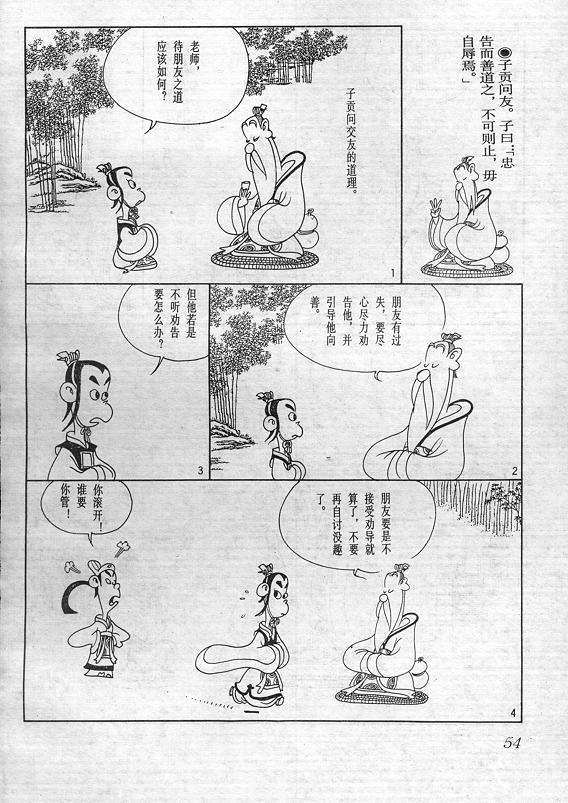 ●子贡问友。子曰：「忠
告而善道之，不可则止，毋
自辱焉。」
子贡问交友的道理。
老师，
待朋友之道
应该如何？
1
朋友有过
失，要尽
心尽力劝
告他，并
引导他向
善。
2
但他若是
不听劝告
要怎么办？
3
朋友要是不
接受劝导就
算了，不要
再自讨没趣
了。
你滚开！
谁要
你管！
4
54